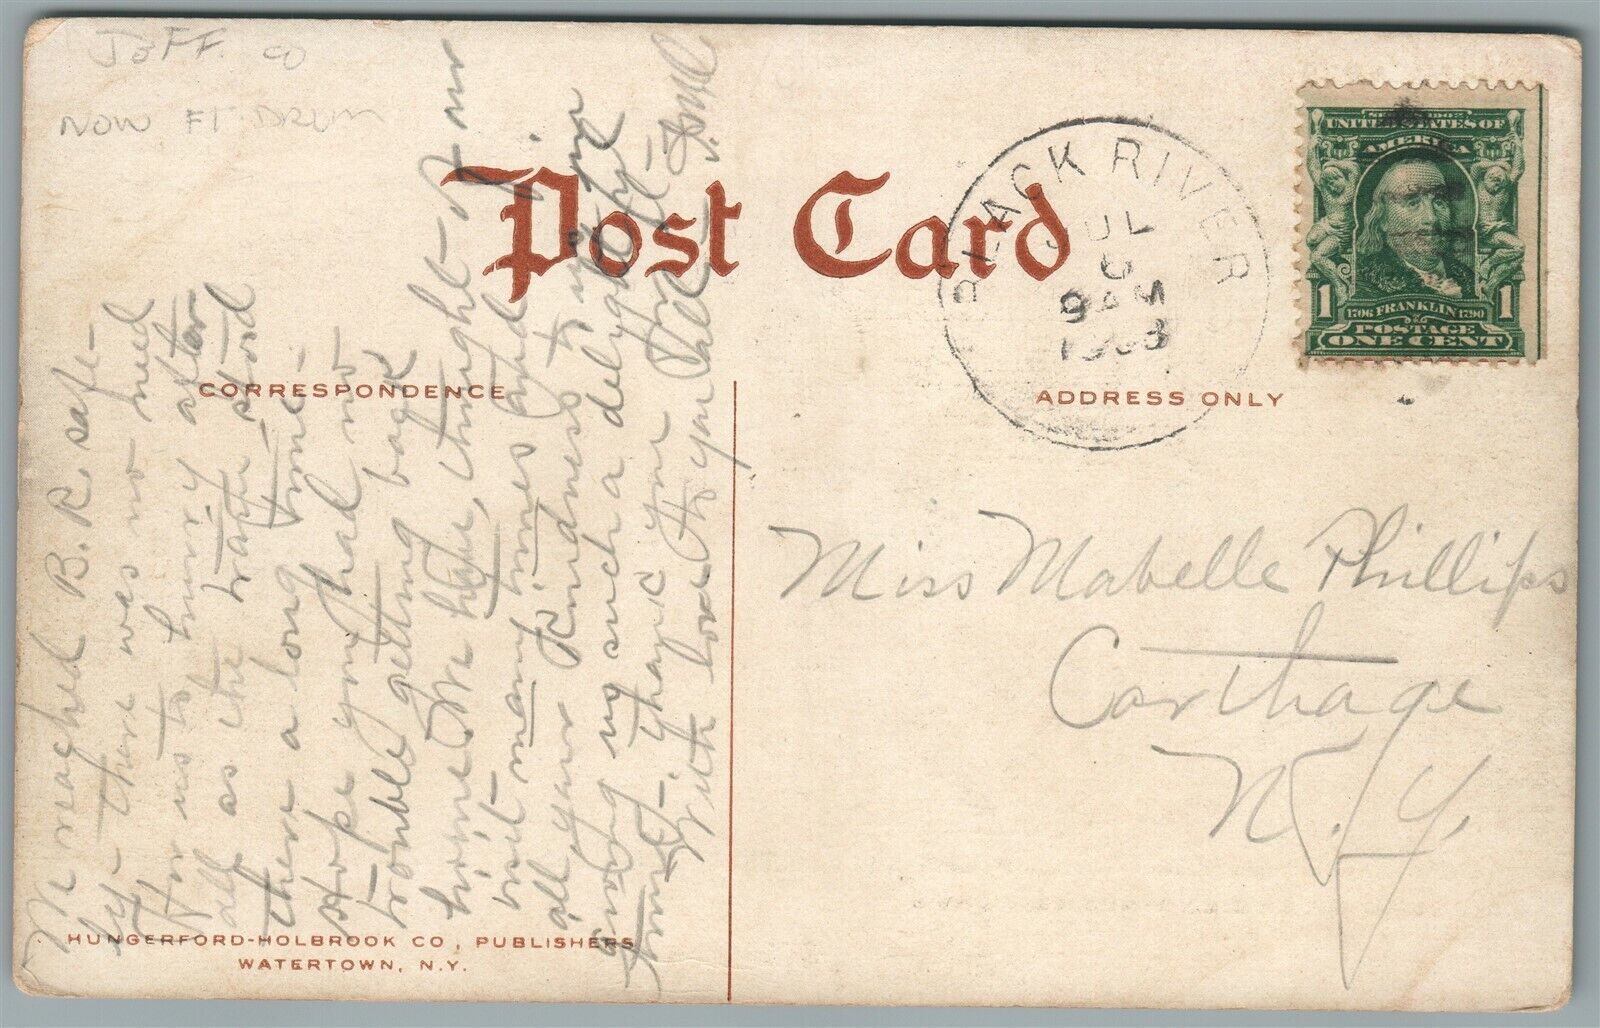 JEFF. CO
NOW FT. DRUM
Post Card
BLACK RIVER
JUL
6
9 AM
1908
UNITED STATES OF
AMERICA
1 1706 FRANKLIN 1790 1
POSTAGE
ONE CENT
CORRESPONDENCE
ADDRESS ONLY
We reached B. R. safe-
ly- there was no need
for us to hurry after
all as the train stood
there a long time-
Hope you had no
trouble getting back
home. We have thought of our
visit many times and
all your kindness to us in
giving us such a delightful
time- thank you
With love to you
Miss Mabelle Phillips
Carthage
N. Y.
HUNGERFORD-HOLBROOK CO., PUBLISHERS
WATERTOWN, N.Y.